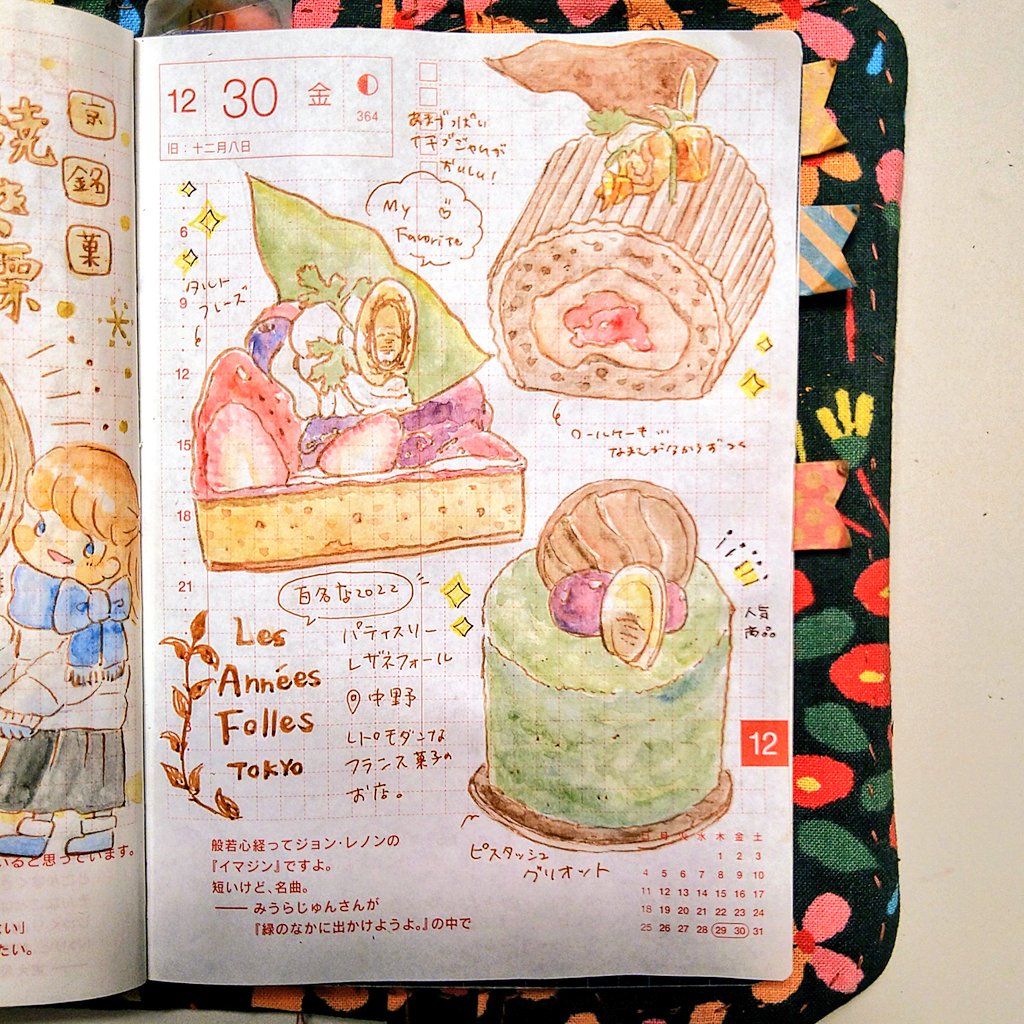 京
銘
菓
焼
栗
いると思っています。
たい。
12 30 金
364
旧：十二月八日
あまずっぱい
おいしい！
My
Favorite
タルト
フレーズ
6
9
12
15
18
21
ロールケーキ…
百名店2022
Les
Années
Folles
TOKYO
パティスリー
レザネフォール
中野
レトロモダンな
フランス菓子の
お店。
人気
商品
ピスタッシュ
グリオット
12
般若心経ってジョン・レノンの
『イマジン』ですよ。
短いけど、名曲。
── みうらじゅんさんが
『緑のなかに出かけようよ。』の中で
日 月 火 水 木 金 土
1 2 3
4 5 6 7 8 9 10
11 12 13 14 15 16 17
18 19 20 21 22 23 24
25 26 27 28 29 30 31